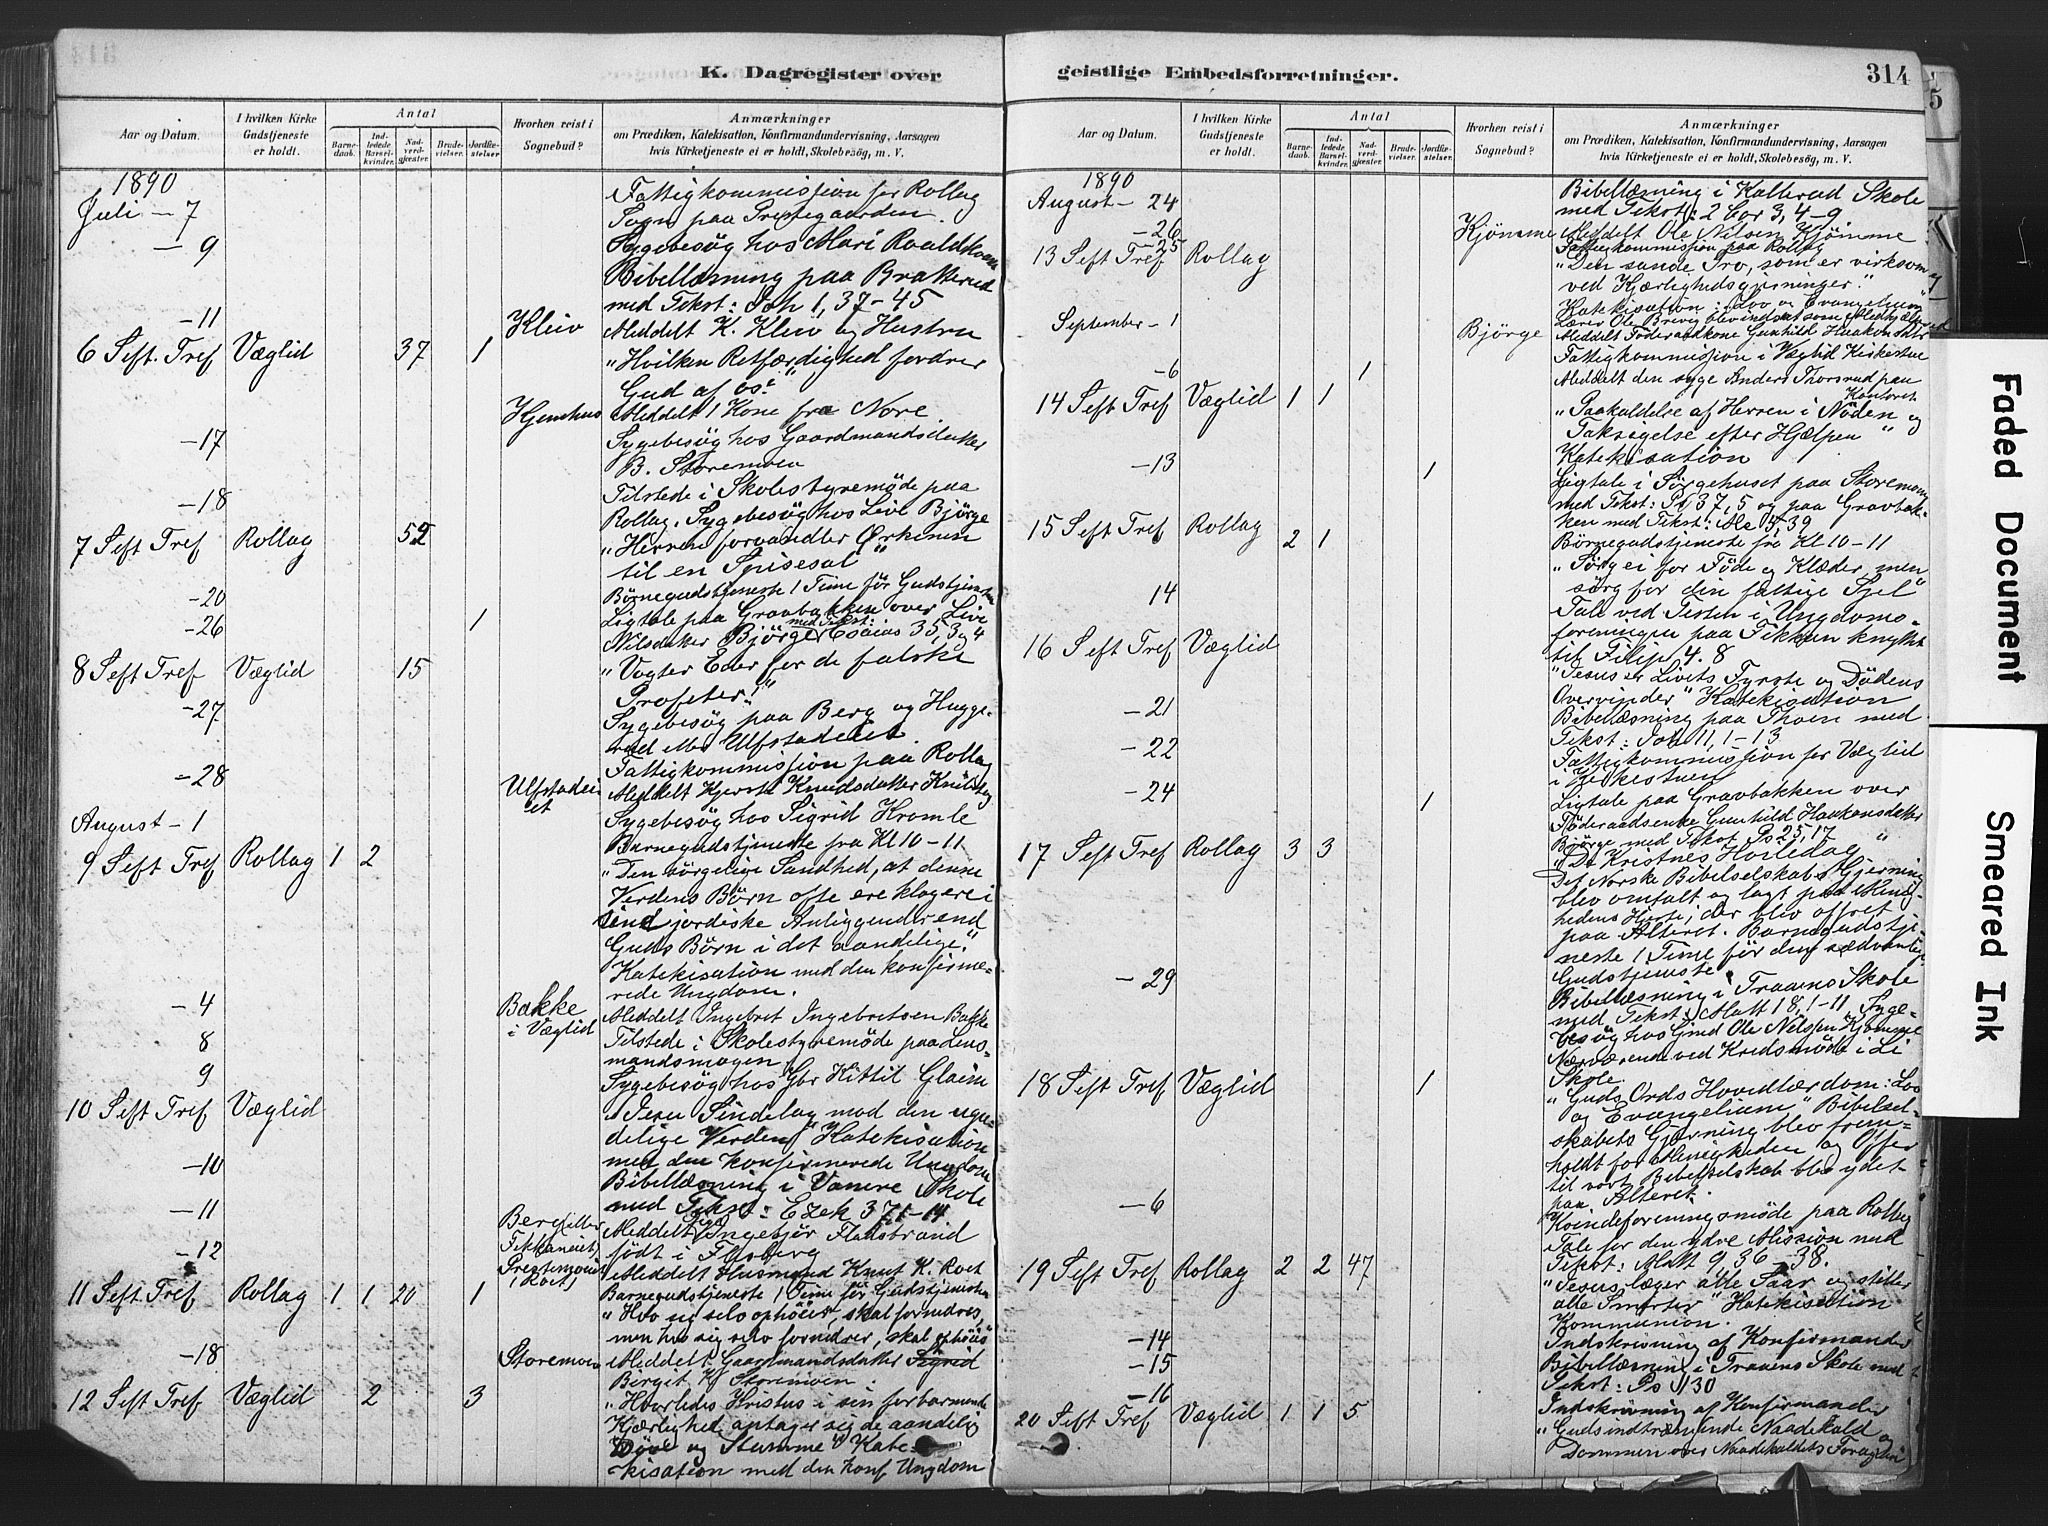 K. Dagregister over
Aar og Datum.
I hvilken Kirke Gudstjeneste er holdt.
Antal
Barnedaab.
Indledede Barselkvinder.
Nadverdgjæster.
Brudevielser.
Jordfæstelser
Hvorhen reist i Sognebud?
Anmærkninger
om Prædiken, Katekisation, Konfirmandundervisning, Aarsagen
hvis Kirketjeneste ei er holdt, Skolebesög, m. V.
1890
Juli - 7 Fattigkommissjon for Rollag
Sogn paa Prestegaarden.
- 9 Sygebesøg hos Mari Roaldskvam
Bibellæsning paa Bratterud
med Tekst: Joh 1, 37-45
- 11 Kleiv Meddelt K. Kleiv og Hustru
6 Seft. Tref Væglid 37 1 "Hvilken Retfærdighed fordrer
Gud af os?"
Kjemhus Meddelt 1 Kone fra Nore.
- 17 Sygebesøg hos Gaardmandsdatter
B. Storemoen
- 18 Tilstede i Skolestyremøde paa
Rollag. Sygebesøg hos Live Bjørge
7 Seft Tref Rollag 52 "Herren forvandler Ørkenen
til en Spisesal"
- 20 Børnegudstjeneste 1 Time før Gudstjenesten
- 26 1 Ligtale paa Gravbakken over Live
Nilsdatter Bjørge med Tekst: Esaias 35, 3 og 4
8 Seft Tref Væglid 15 "Vogter Eder for de falske
Profeter!"
- 27 Sygebesøg paa Berg og Hugge-
rud eller Ulfstadeiet
Fattigkommissjon paa Rollag
- 28 Ulfstadeiet Meddelt Kjersti Knudsdatter
August - 1 Sygebesøg hos Sigrid Kromle
Barnegudstjeneste fra Kl 10-11
9 Seft Tref Rollag 1 2 "Den sørgelige Sandhed, at denne
Verdens Børn ofte ere klogere i
sine jordiske Anliggender end
Guds Børn i det aandelige."
Katekisation med den konfirme-
rede Ungdom.
- 4 Bakke i Væglid Meddelt Ingebret Ingebretsen Bakke
8 Tilstede i Skolestyremøde paa Lens-
mandsmogen
9 Sygebesøg hos Gbr Kittil Glaim
10 Seft Tref Væglid "Jesu Sindelag mod den ugu-
delige Verden" Katekisation
med den konfirmerede Ungdom
- 10 Bibellæsning i Vanere Skole
med Tekst: Ezek 37, 1-14
- 11 Meddelt Ingebjør Fladsbrand
født i Flesberg
- 12 Meddelt Husmand Knut K. Roet
11 Seft. Tref Rollag 1 1 20 1 Barnegudstjeneste 1 Time før Gudstjenesten
"Hvo sig selv ophøier, skal fornedres,
men hvo sig selv fornedrer, skal ophøies"
- 18 Storemoen Meddelt Gaardmandsdatter Sigrid
Birgit K Storemoen.
12 Seft Tref Væglid 2 3 "Hvorledes Kristus i sin forbarmende
Kjærlighed antager sig de aandelig
Døve og Stumme" Kate-
kisation med den konf Ungdom
geistlige Embedsforretninger.
314
Aar og Datum.
I hvilken Kirke Gudstjeneste er holdt.
Antal
Barnedaab.
Indledede Barselkvinder.
Nadverdgjæster.
Brudevielser.
Jordfæstelser.
Hvorhen reist i Sognebud?
Anmærkninger
om Prædiken, Katekisation, Konfirmandundervisning, Aarsagen
hvis Kirketjeneste ei er holdt, Skolebesög, m. V.
1890
August - 24 Bibellæsning i Kallerud Skole
med Tekst: 2 Cor 3, 4-9.
- 26 Kjømme Meddelt Ole Nilsen Kjømme
- 25 Fattigkommissjon paa Rollag
13 Seft Tref Rollag "Den sande Tro, som er virksom
ved Kjærlighedsgjerninger."
Katekisation: Lov og Evangelium
September - 1 Lærer Ole Brevig blev indsat som Medhjælper
Bjørge Meddelt Føderaadskone Gunhild Haakonsdtr
Fattigkommissjon i Væglid Kirkestue
- 6 1 Meddelt den syge Anders Thorsrud paa
Kontoret
14 Seft Tref Væglid 1 1 "Paakaldelse af Herren i Nøden og
Taksigelse efter Hjælpen"
Katekisation
- 13 1 Ligtale i Sørgehuset paa Storemoen
med Tekst: Ps 37, 5 og paa Gravbak-
ken med Tekst:
15 Seft Tref Rollag 2 1 Børnegudstjeneste fra Kl 10-11
"Sørg ei for Føde og Klæder, men
sørg for din fattige Sjel"
14 Tale ved Festen i Ungdoms-
foreningen paa Fikkan knyttet
til Filip 4. 8
16 Seft Tref Væglid "Jesus er Livets Fyrste og Dødens
Overvinder" Katekisation
- 21 Bibellæsning paa Thoen med
Tekst: Joh 11, 1-13
- 22 Fattigkommissjon for Væglid
i Kirkestuen
- 24 1 Ligtale paa Gravbakken over
Føderaadsenke Gunhild Haakonsdatter
Bjørge med Tekst Ps 25, 17
17 Seft Tref Rollag 3 3 "De Kristnes Hviledag"
Det Norske Bibelselskabs Gjerning
blev omtalt og lagt paa Menig-
hedens Hjerte, der blev offret
paa Alteret. Barnegudstje-
neste 1 Time før den sædvanlige
Gudstjeneste
- 29 Bibellæsning i Traaens Skole
med Tekst: Matt 18, 1-11. Syge-
besøg hos Gmd Ole Nilssen Kjømme
Nærværende ved Kredsmøde i Li
Skole.
18 Seft Tref Væglid 1 "Guds Ords Hovedlærdom: Lov
og Evangelium" Bibelsel-
skabets Gjerning blev frem-
holdt for Menigheden og Offer
til vort Bibelselskab blev ydet
paa Alteret.
- 6 Kvindeforeningsmøde paa Rollag
Tale for den ydre Mission med
Tekst: Matt 9, 36-38.
19 Seft Tref Rollag 2 2 47 "Jesus læger alle Saar og stiller
alle Smerter" Katekisation
Kommunion.
- 14 Indskrivning af Konfirmander
- 15 Bibellæsning i Traaens Skole med
Tekst: Ps 130
- 16 Indskrivning af Konfirmander
20 Seft Tref Væglid 1 1 5 "Guds indtrængende Naadekald og
Dommen over Naadekaldets Foragtere
Faded Document
Smeared Ink